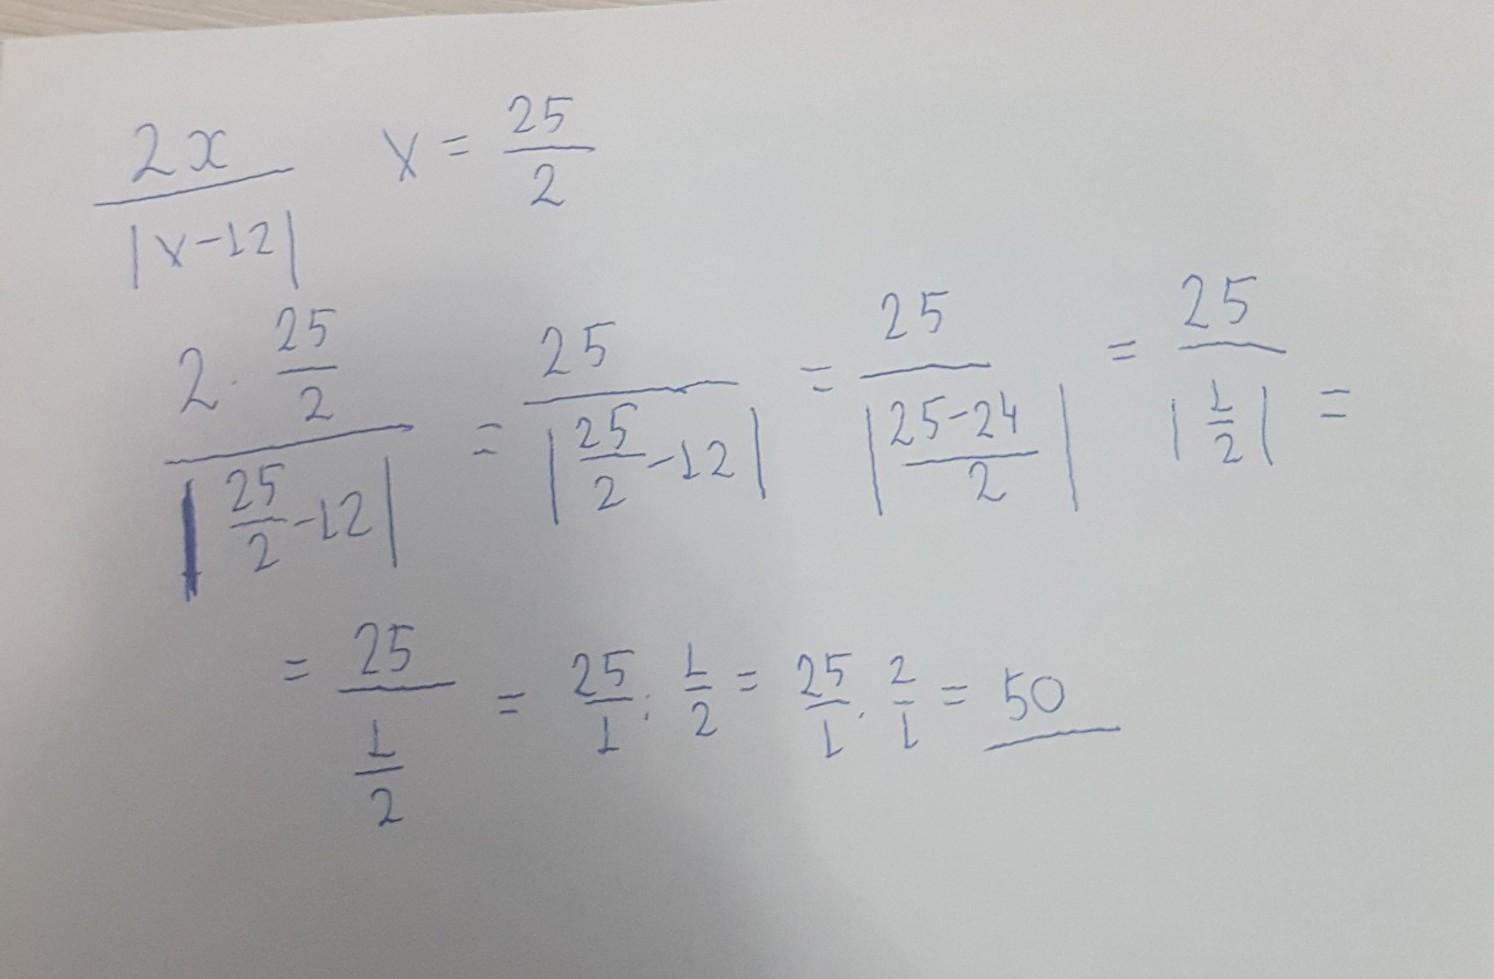 2x/|x-12| x = 25/2
(2·25/2)/|25/2-12| = 25/|25/2-12| = 25/|(25-24)/2| = 25/|1/2| =
= 25/(1/2) = 25/1 : 1/2 = 25/1 · 2/1 = 50